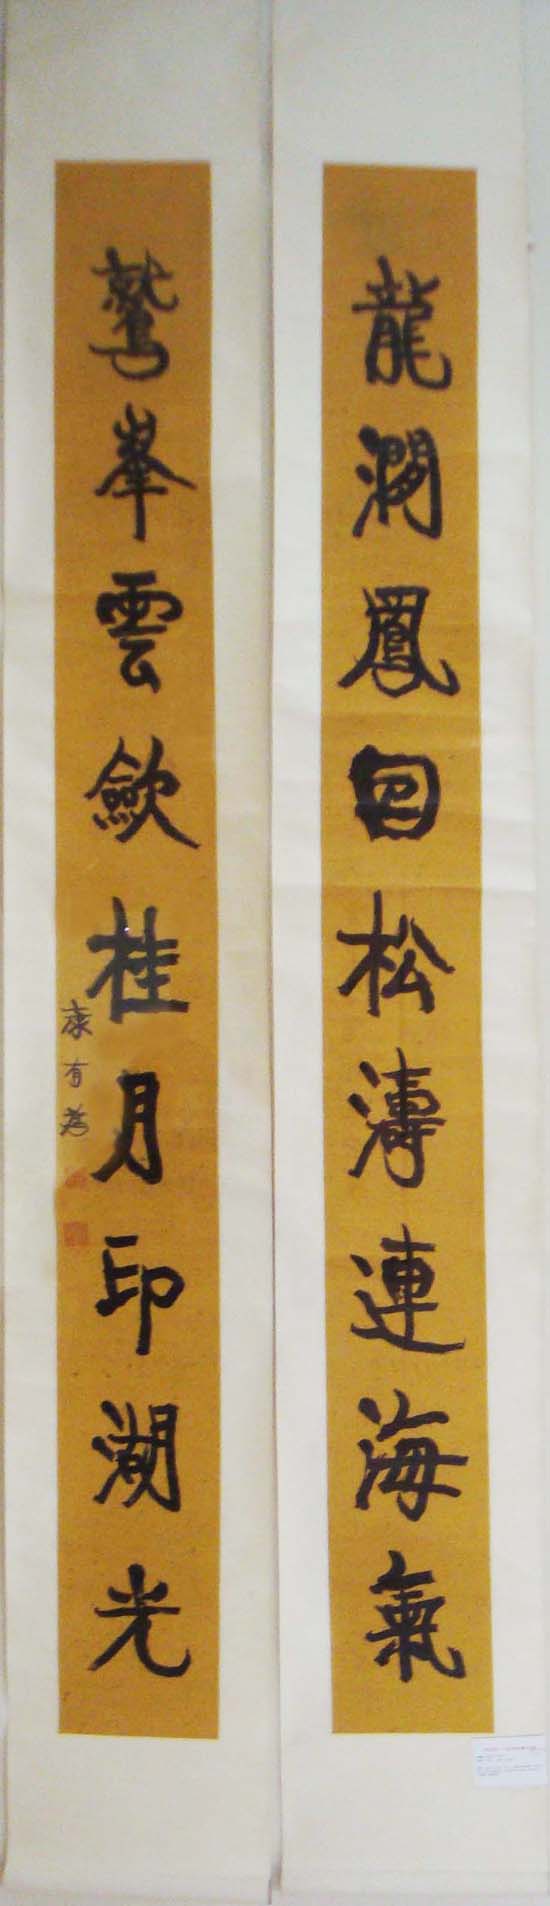 龍澗鳳回松濤連海氣
鷲峯雲歛桂月印湖光
康有為